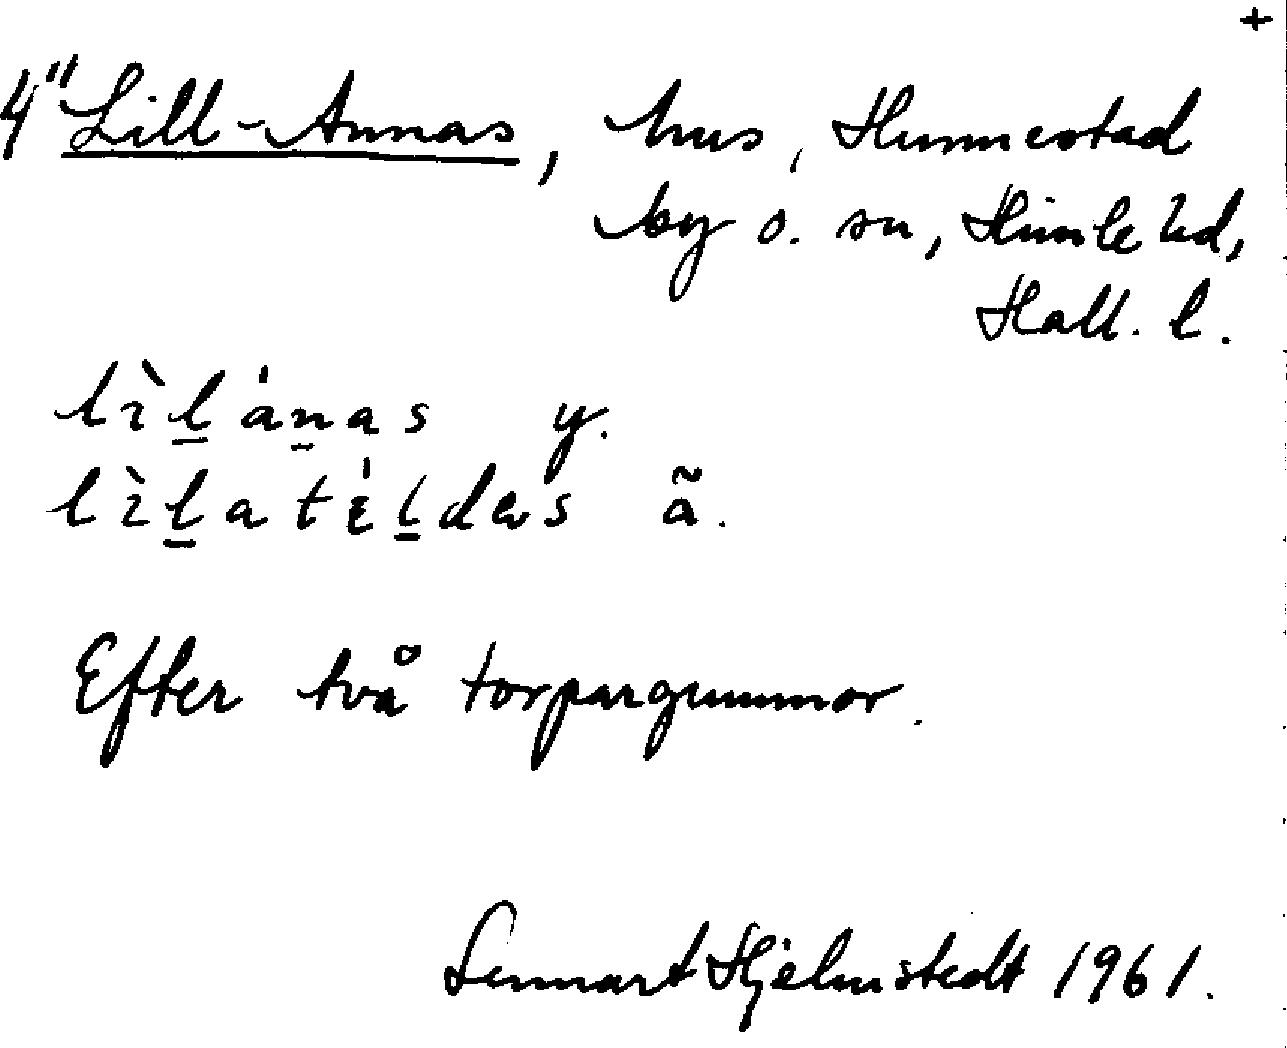 +
4" Lill-Annas, hus, Hunnestad
by o. sn, Himle hd,
Hall. l.
lìl̠ánas y.
lìl̠atɛ́l̠das ã.
Efter två torpargummor.
Lennart Hjelmstedt 1961.